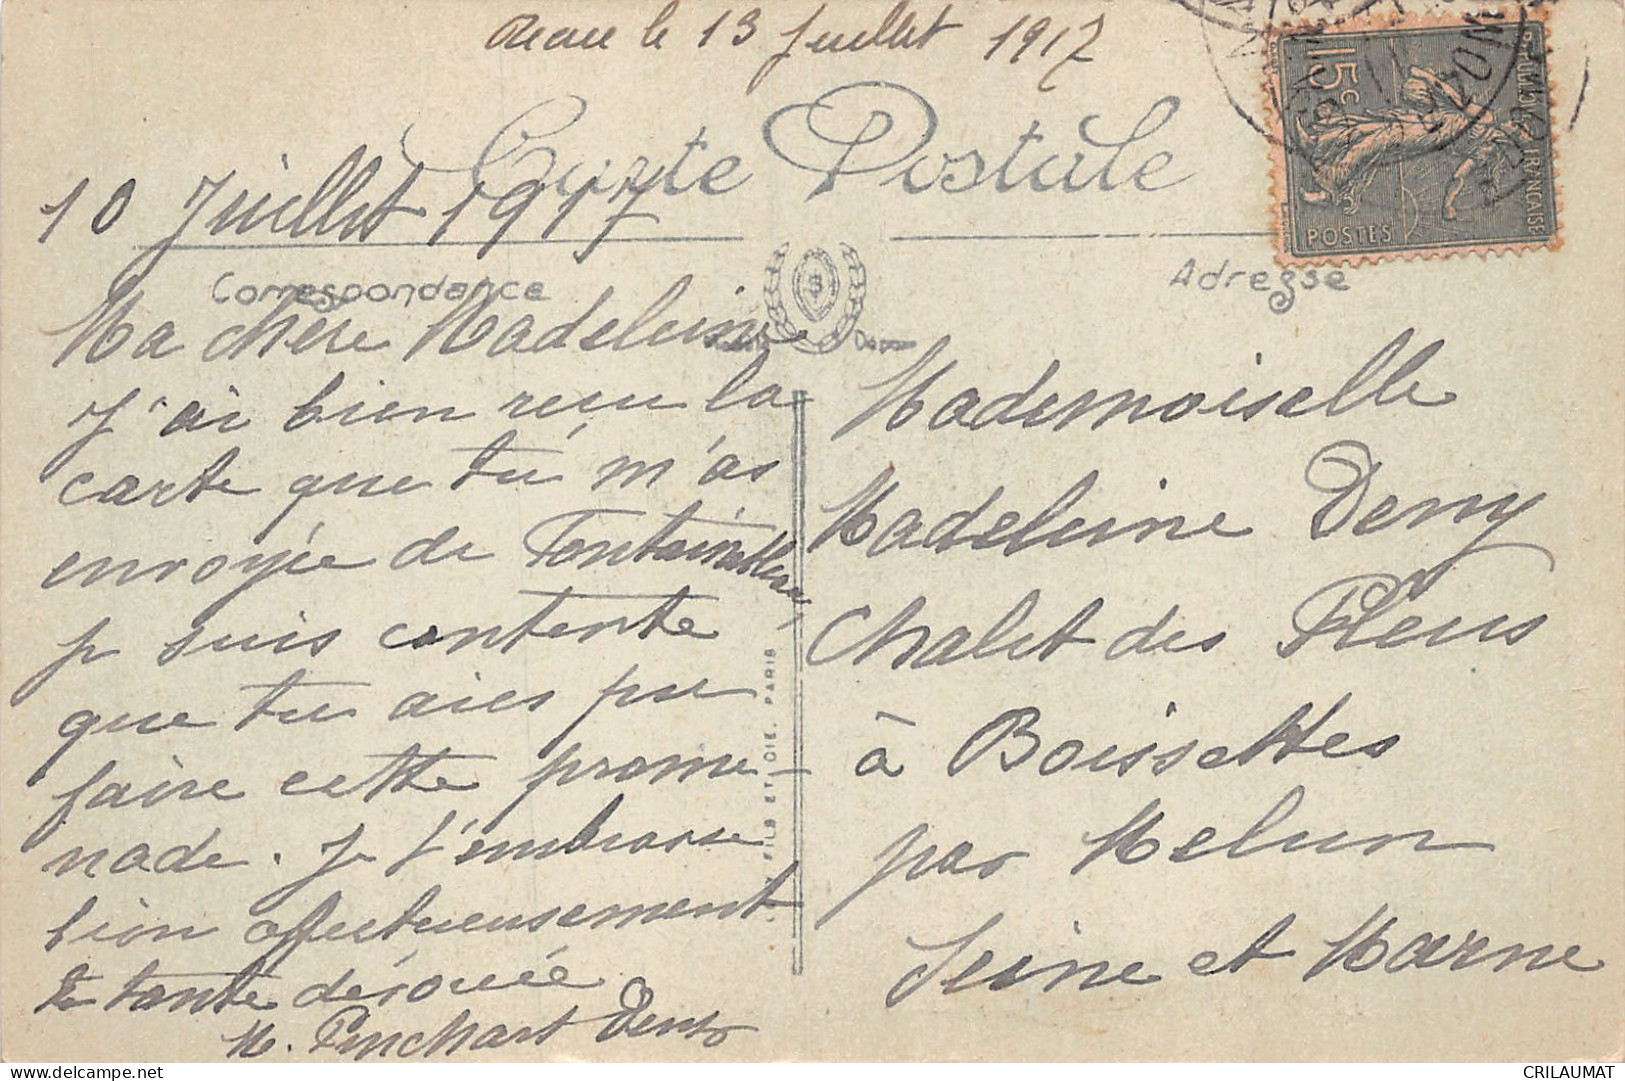 Reçue le 13 Juillet 1917
Carte Postale
10 Juillet 1917
Correspondance
Adresse
Ma chère Madeleine
J'ai bien reçu la
carte que tu m'as
envoyée de Fontainebleau,
je suis contente
que tu aies pu
faire cette prome-
nade. Je t'embrasse
bien affectueusement
ta tante dévouée
M. Pinchart Deny
Mademoiselle
Madeleine Deny
Chalet des Fleurs
à Boissettes
par Melun
Seine et Marne
FILS ET CIE. PARIS
15c
POSTES
REPUBLIQUE FRANÇAISE
CRILAUMAT